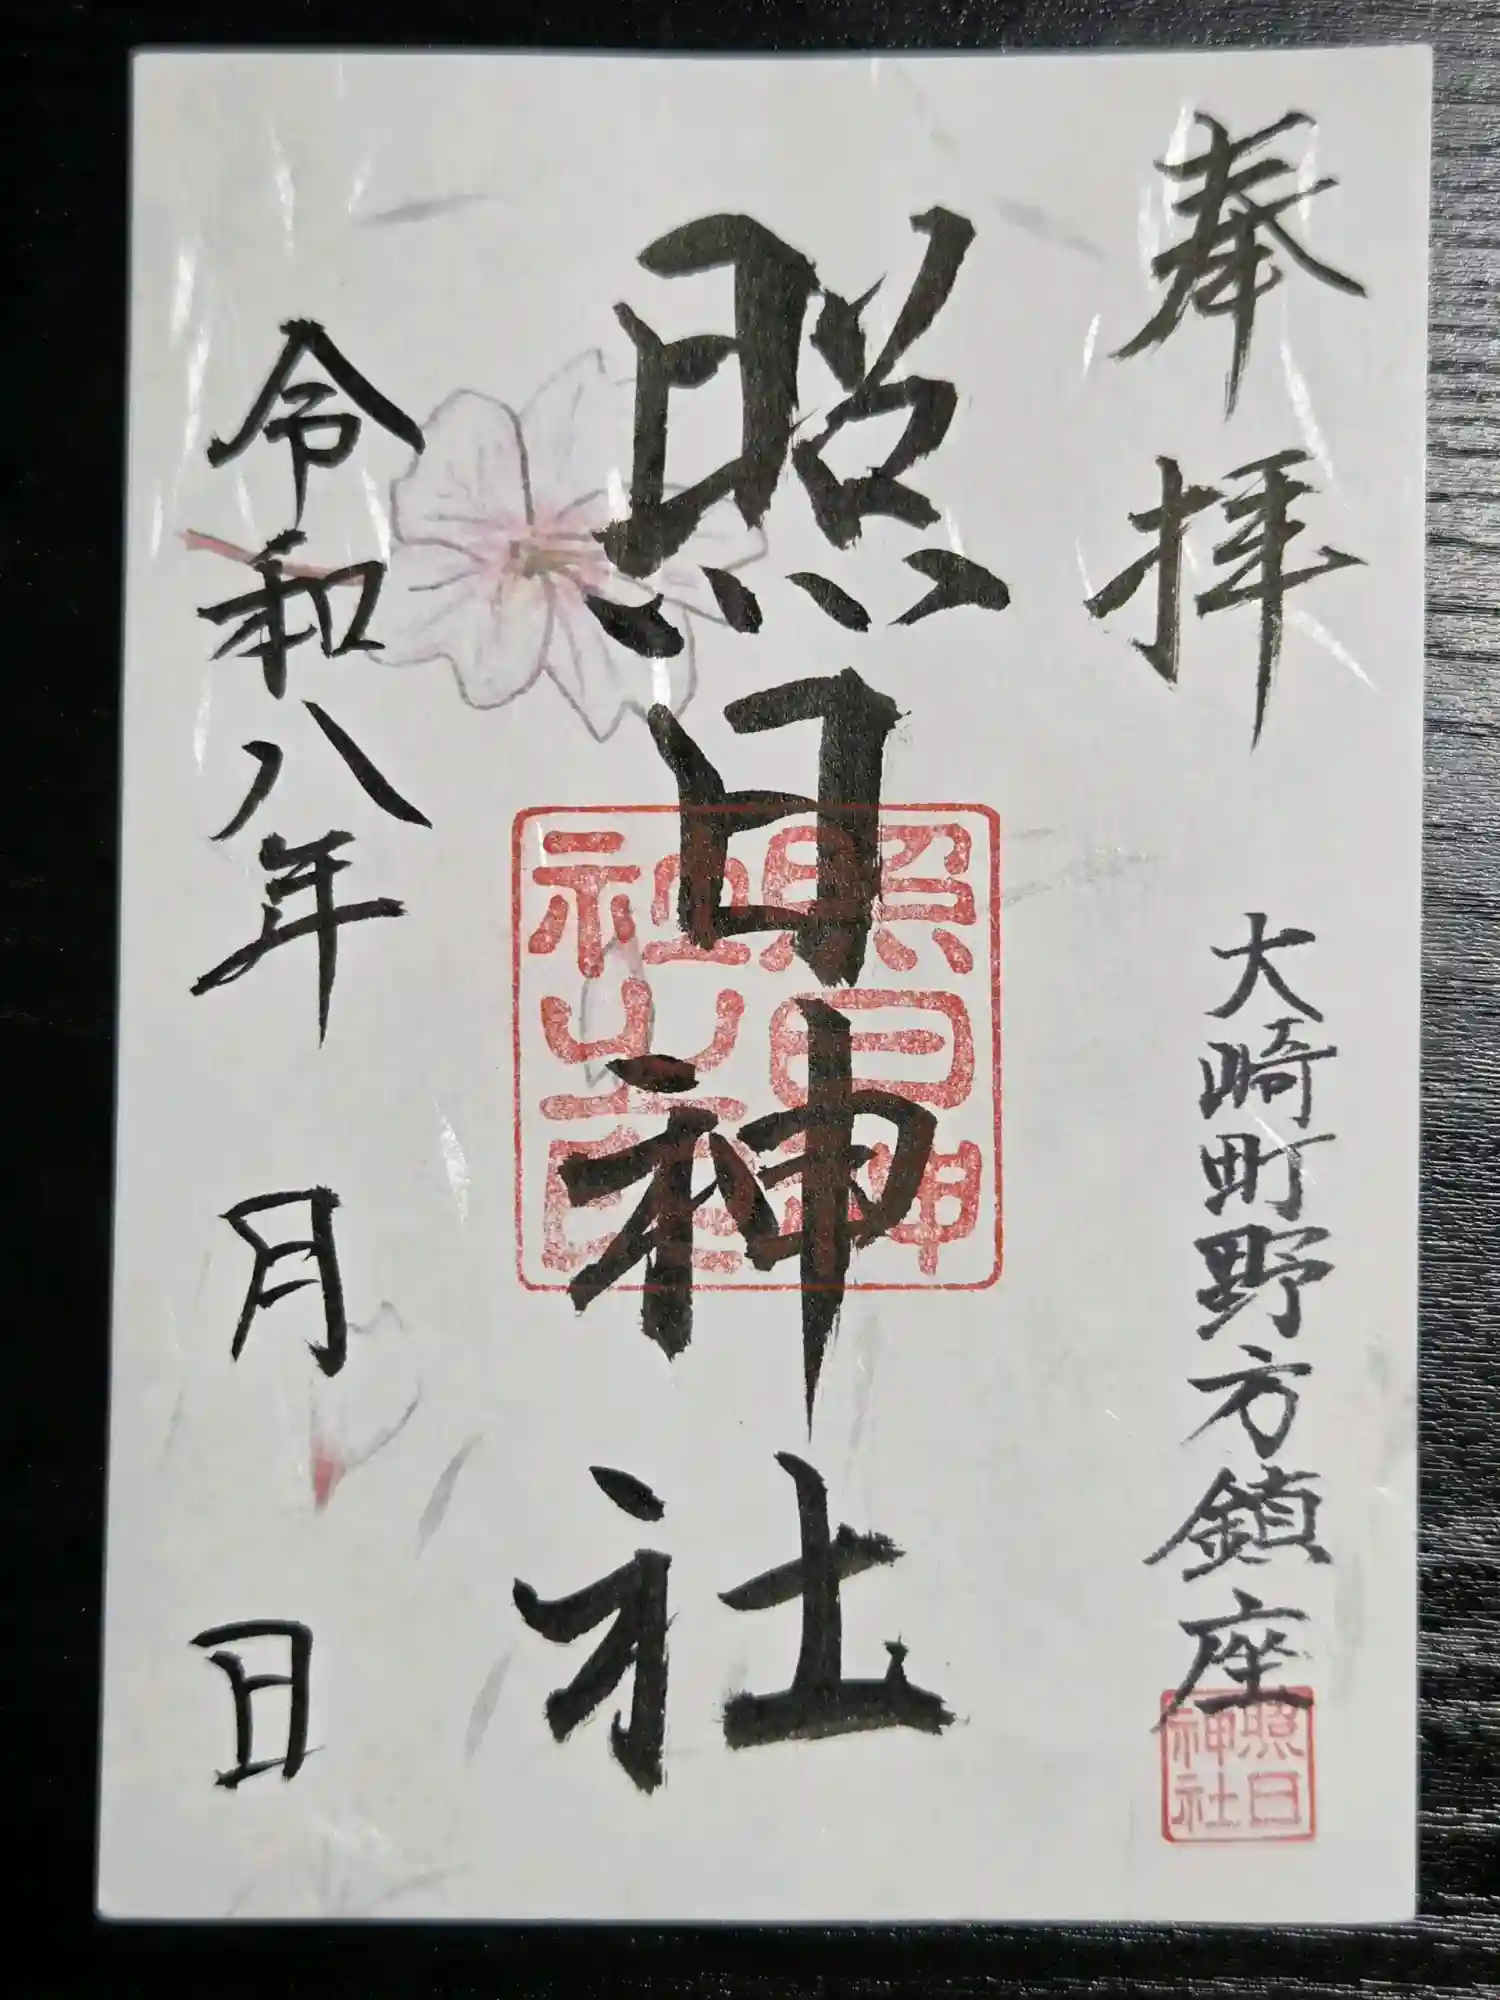 奉拝
大崎町野方鎮座
照日神社
照日神社
照日神
社之印
令和八年 月 日